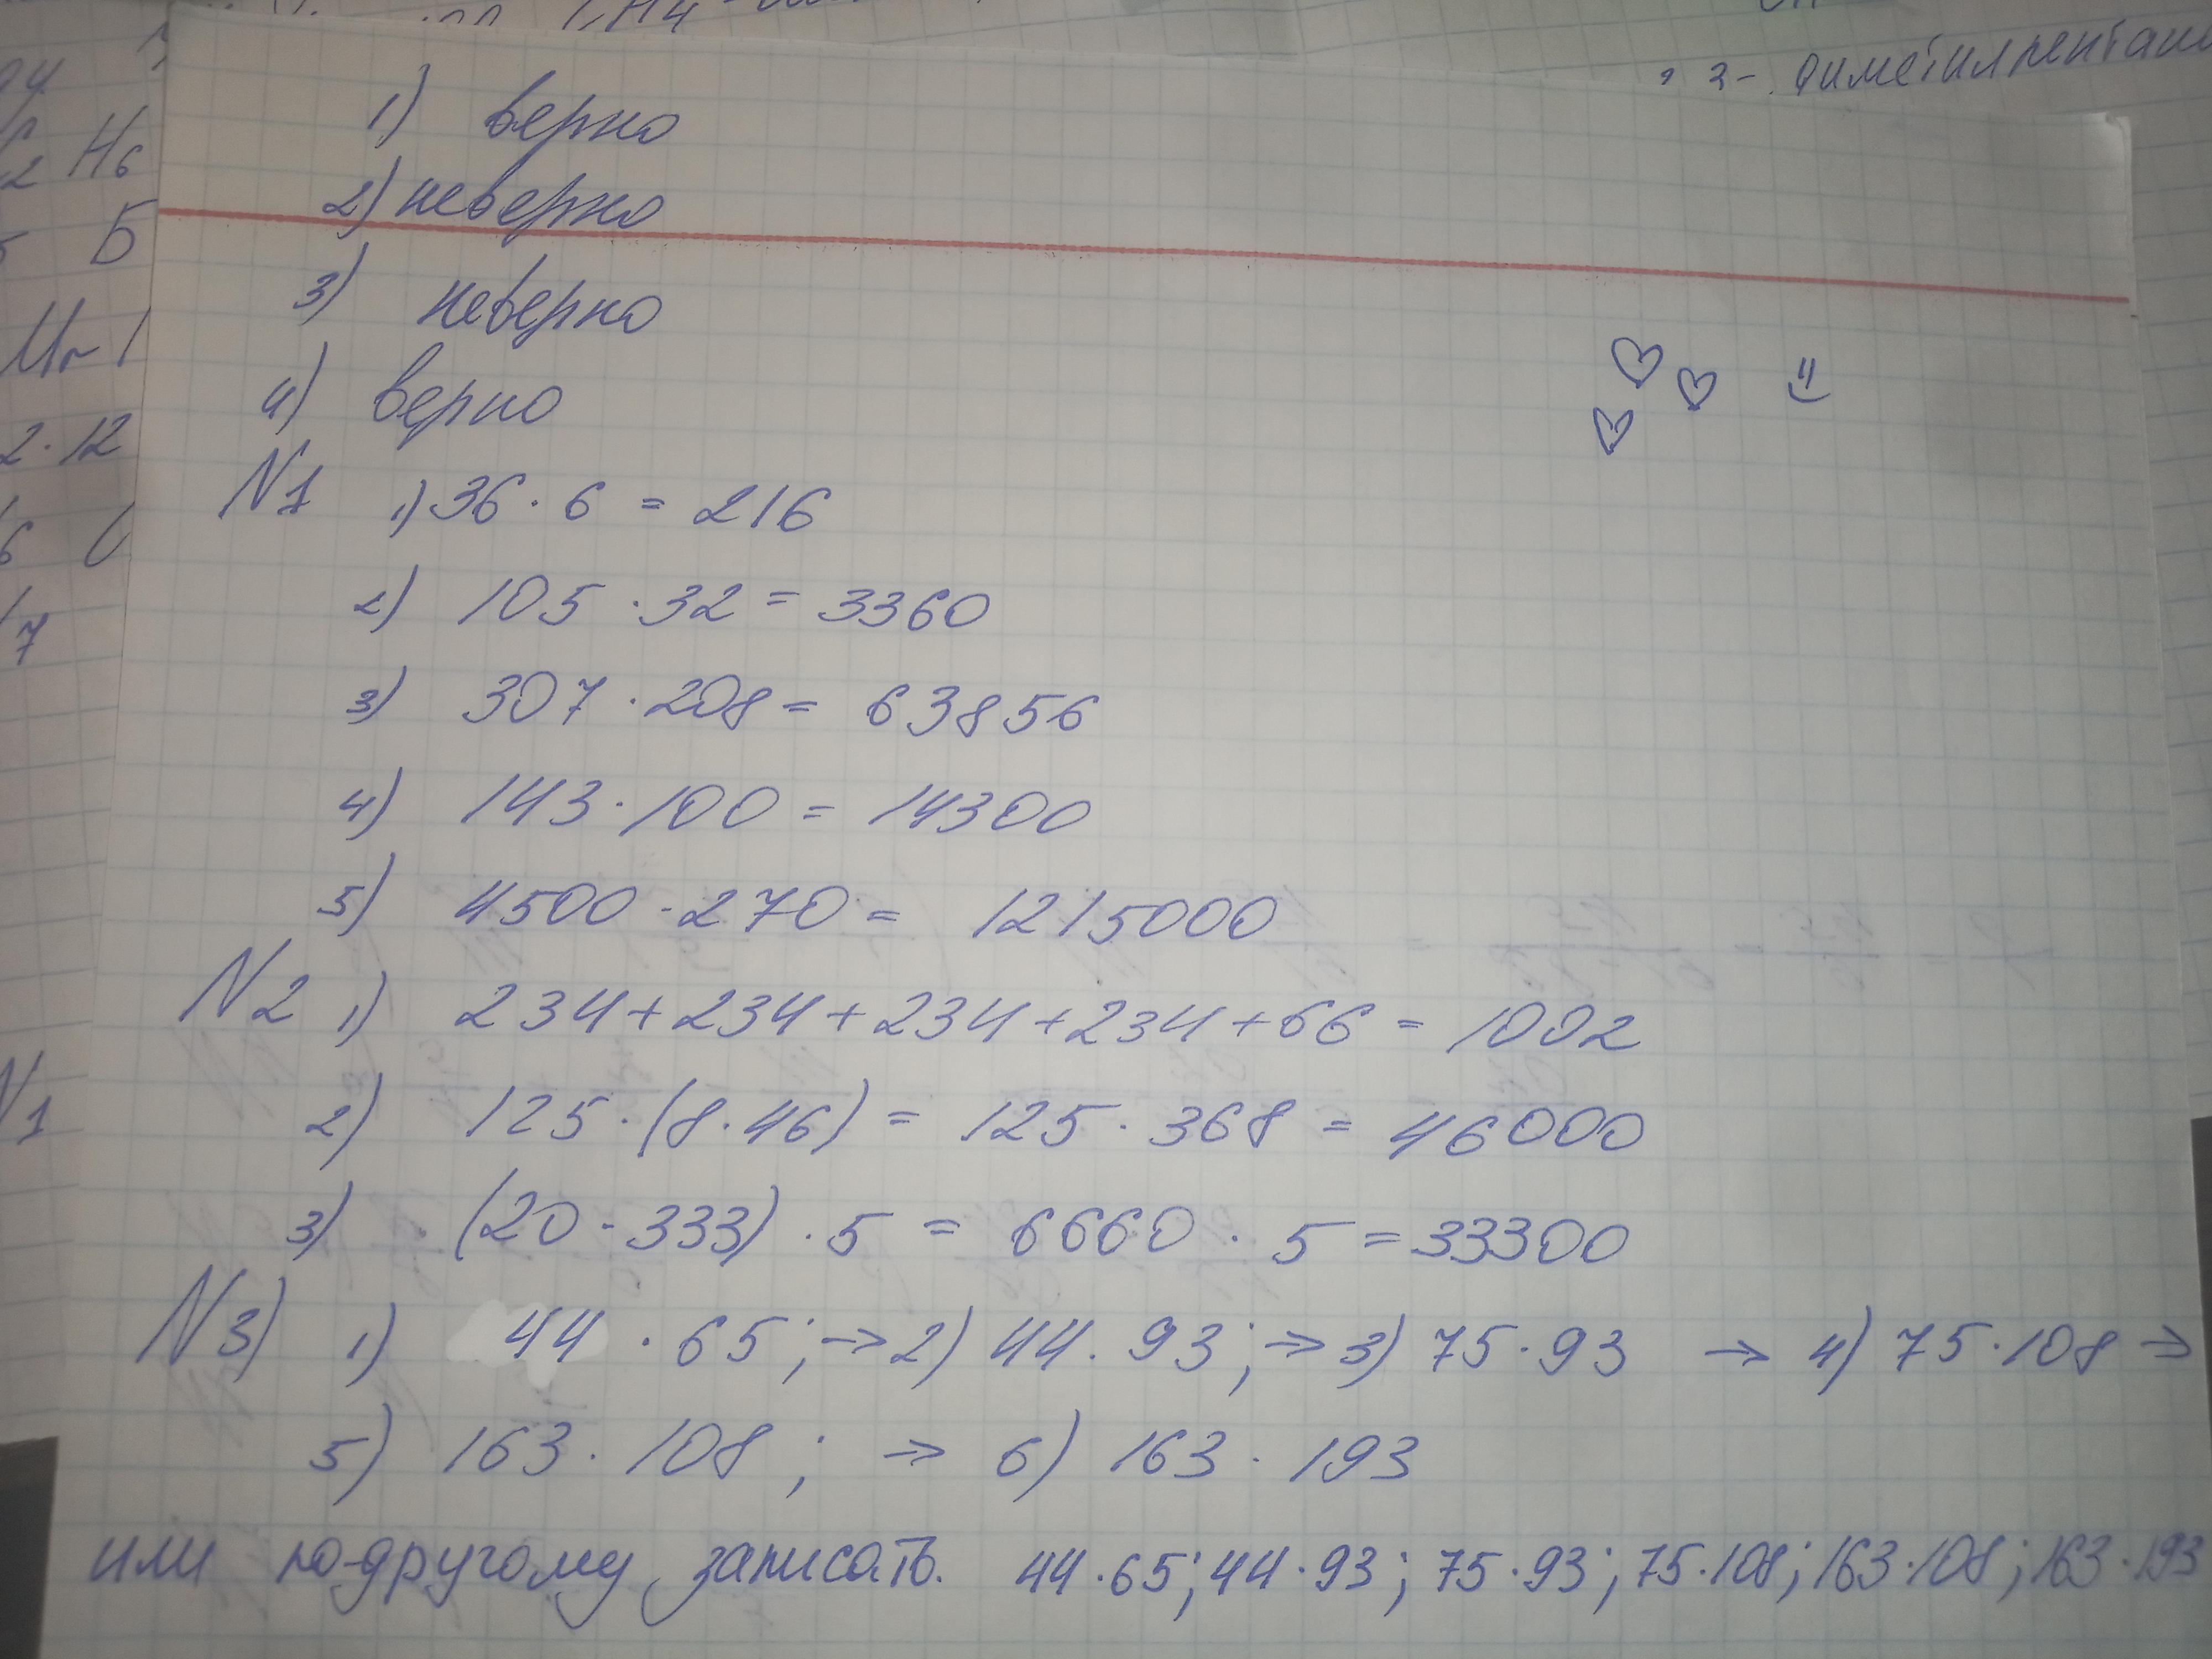 3- диметилпентан
1) верно
2) неверно
3) неверно
4) верно
N1 1) 36 · 6 = 216
2) 105 · 32 = 3360
3) 307 · 208 = 63856
4) 143 · 100 = 14300
5) 4500 · 270 = 1215000
N2 1) 234 + 234 + 234 + 234 + 66 = 1002
2) 125 · (8 · 46) = 125 · 368 = 46000
3) (20 · 333) · 5 = 6660 · 5 = 33300
N3) 1) 44 · 65; → 2) 44 · 93; → 3) 75 · 93 → 4) 75 · 108 →
5) 163 · 108 ; → 6) 163 · 193
или по-другому записать. 44 · 65; 44 · 93; 75 · 93; 75 · 108; 163 · 108; 163 · 193
H6
Б
Mr
2 · 12
7
N1